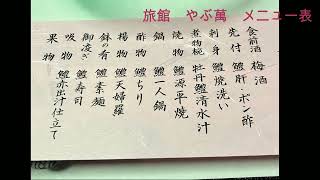 旅館　やぶ萬　メニュー表
食前酒　梅酒
先付　鱧肝　ポン酢
刺身　鱧焼洗い
煮物椀　牡丹鱧清水汁
焼物　鱧源平焼
鍋　鱧一人鍋
酢物　鱧ちり
揚物　鱧天婦羅
鉢の肴　鱧素麺
御凌ぎ　鱧寿司
吸物　鱧赤出汁仕立て
果物